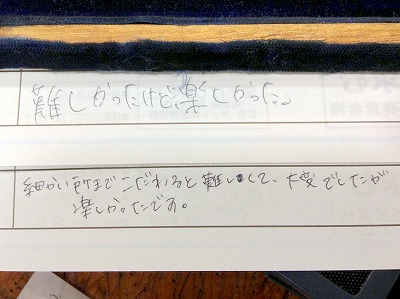 難しかったけど、楽しかった。
細かい所までこだわると難しくて、大変でしたが
楽しかったです。